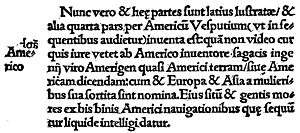 Nunc vero & hęę partes sunt latius lustratæ/ &
alia quarta pars per Americū Vesputium(vt in se
quentibus audietur)inuenta est:quā non video cur
quis iure vetet ab Americo inuentore sagacis inge
nij viro Amerigen quasi Americi terram/siue Ame
ricam dicendam:cum & Europa & Asia a mulieri-
bus sua sortita sint nomina. Eius sitū & gentis mo
res ex bis binis Americi nauigationibus quę sequū
tur liquide intelligi datur.
Ame-
rico